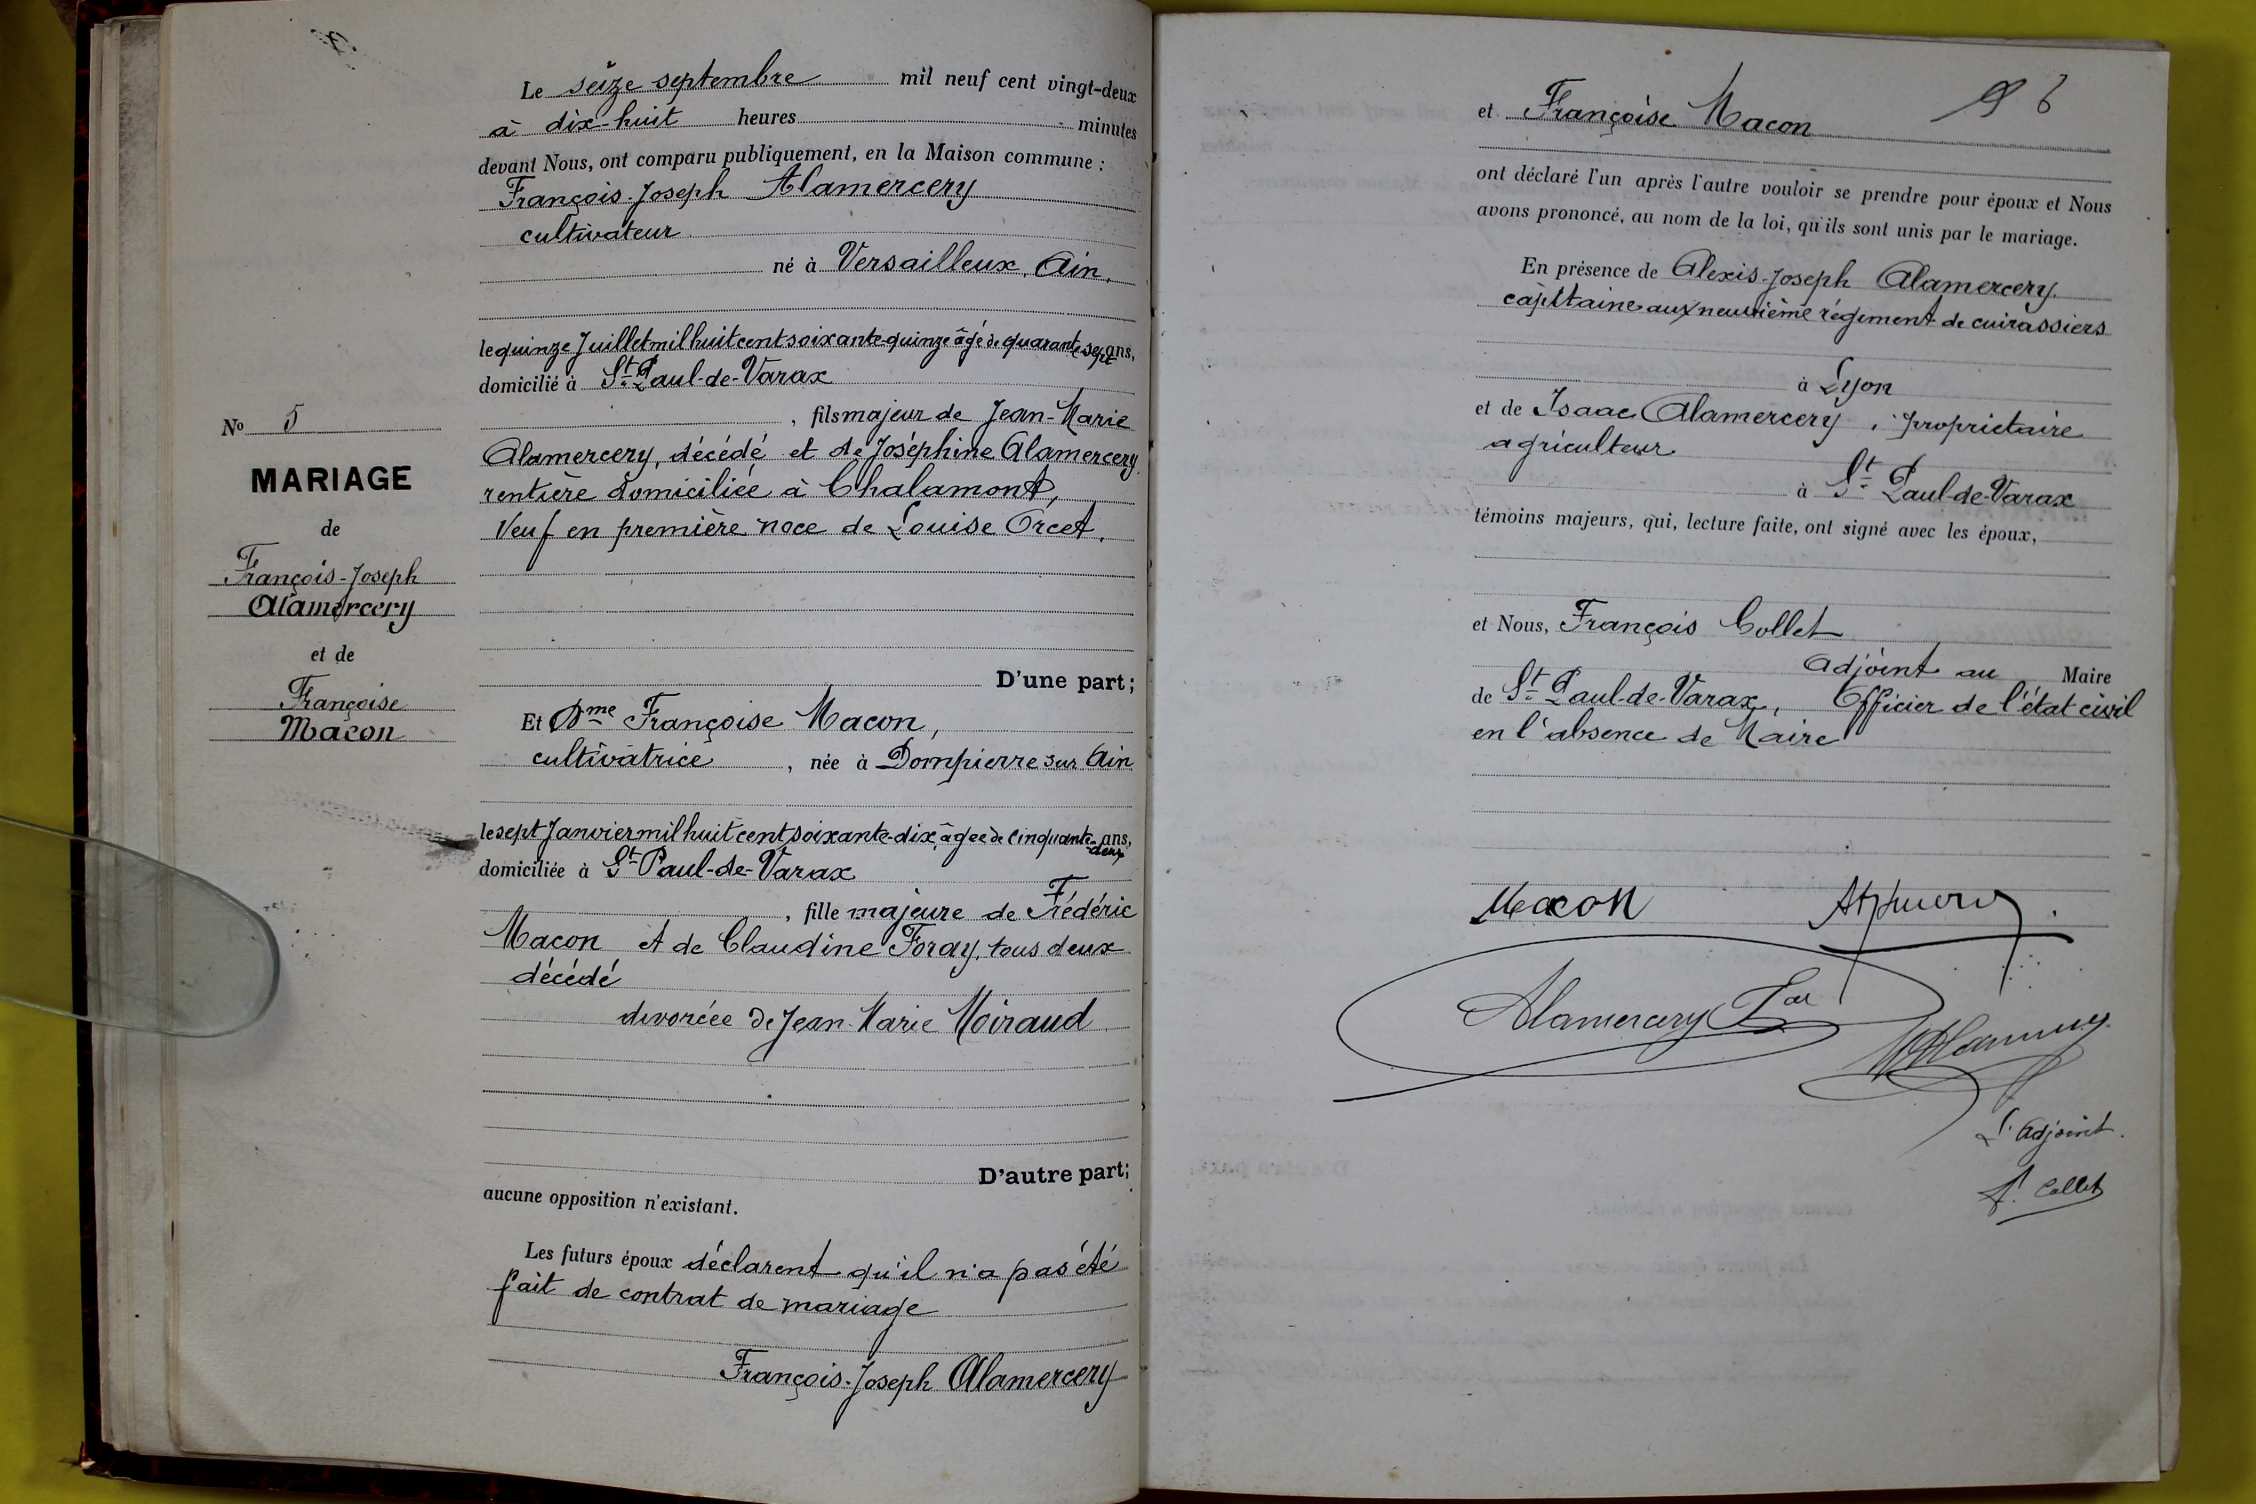 Le seize septembre mil neuf cent vingt-deux
à dix-huit heures minutes
devant Nous, ont comparu publiquement, en la Maison commune :
François-Joseph Alamercery
cultivateur
né à Versailleux, Ain,
le quinze Juillet mil huit cent soixante-quinze âgé de quarante sept ans,
domicilié à St Paul-de-Varax
, fils majeur de Jean-Marie
Alamercery, décédé et de Joséphine Alamercery
rentière domiciliée à Chalamont,
Veuf en première noce de Louise Orcet.
D'une part;
Et Dme Françoise Macon,
cultivatrice, née à Dompierre sur Ain
le sept Janvier mil huit cent soixante-dix, âgée de cinquante-deux ans,
domiciliée à St Paul-de-Varax
, fille majeure de Frédéric
Macon et de Claudine Foray, tous deux
décédé
divorcée de Jean-Marie Moiraud
D'autre part;
aucune opposition n'existant.
Les futurs époux déclarent qu'il n'a pas été
fait de contrat de mariage
François-Joseph Alamercery
No 5
MARIAGE
de
François-Joseph
Alamercery
et de
Françoise
Macon
6
et Françoise Macon
ont déclaré l'un après l'autre vouloir se prendre pour époux et Nous
avons prononcé, au nom de la loi, qu'ils sont unis par le mariage.
En présence de Alexis-Joseph Alamercery
capitaine aux neuvième régiment de cuirassiers
à Lyon
et de Isaac Alamercery, propriétaire
agriculteur
à St Paul-de-Varax
témoins majeurs, qui, lecture faite, ont signé avec les époux,
et Nous, François Collet
Adjoint au Maire
de St Paul-de-Varax, Officier de l'état civil
en l'absence de Maire
Macon
Alamercery
L'adjoint.
F. Collet